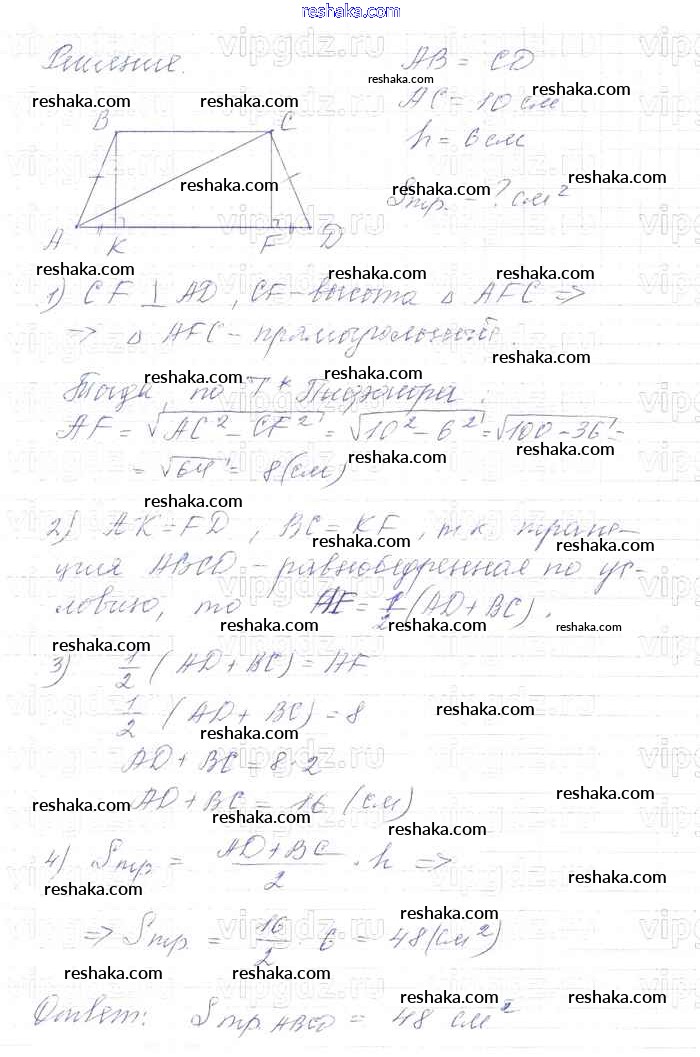 reshaka.com
Решение.
AB = CD
AC = 10 см
h = 6 см
Sтр. - ? см²
B C
A K F D
1) CF ⊥ AD, CF - высота △ AFC =>
=> △ AFC - прямоугольный.
Тогда, по Т* Пифагора:
AF = √AC² - CF² = √10² - 6² = √100 - 36 =
= √64 = 8 (см)
2) AK = FD, BC = KF, т.к. трапе-
ция ABCD - равнобедренная по ус-
ловию, то AF = 1/2 (AD + BC).
3) 1/2 (AD + BC) = AF
1/2 (AD + BC) = 8
AD + BC = 8 · 2
AD + BC = 16 (см)
4) Sтр = AD + BC / 2 · h =>
=> Sтр. = 16/2 · 6 = 48 (см²)
Ответ: Sтр ABCD = 48 см²